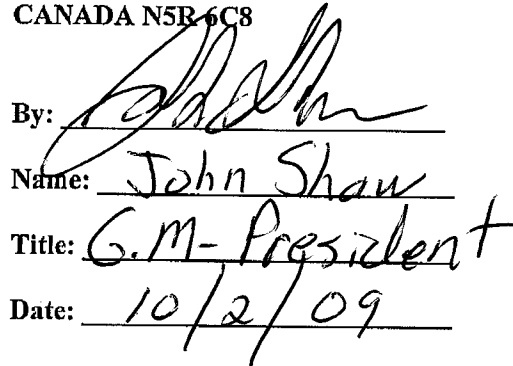 CANADA N5R 6C8
By:
Name: John Shaw
Title: G.M- President
Date: 10/2/09